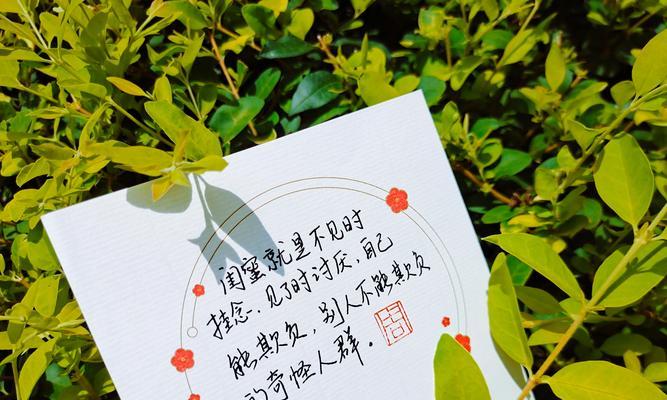 闺蜜就是不见时
挂念，见了时讨厌，自己
能欺负，别人不能欺负
的奇怪人群。